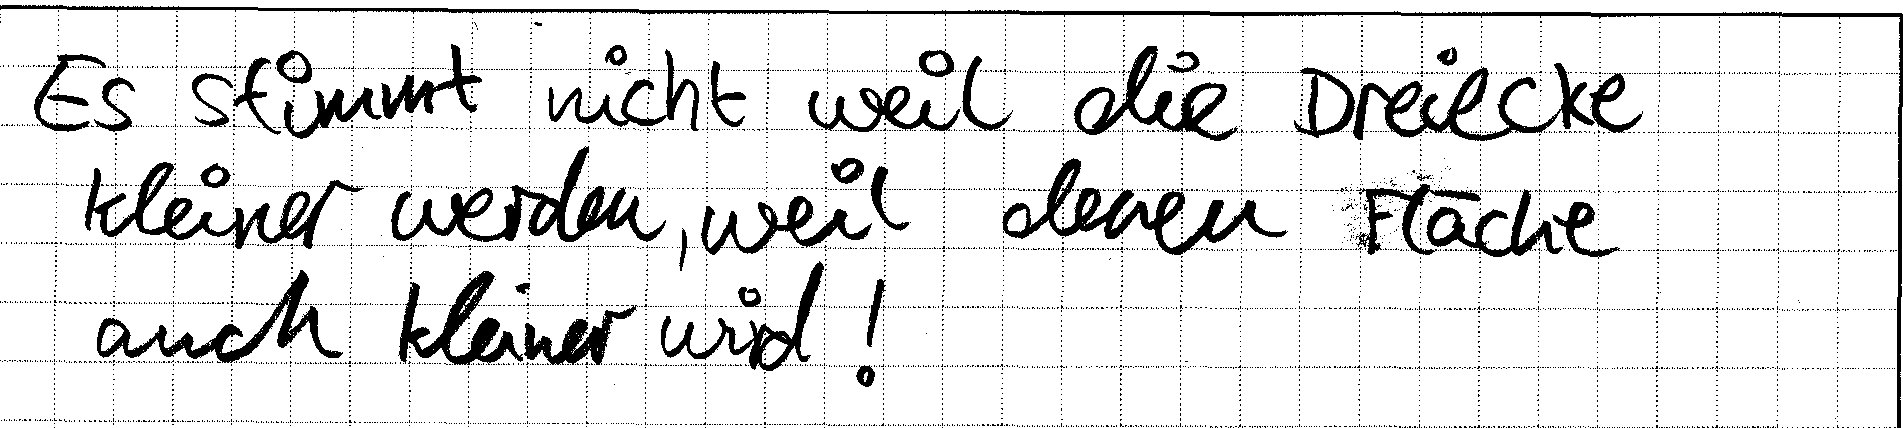 Es stimmt nicht weil die Dreiecke
kleiner werden, weil denen Fläche
auch kleiner wird!